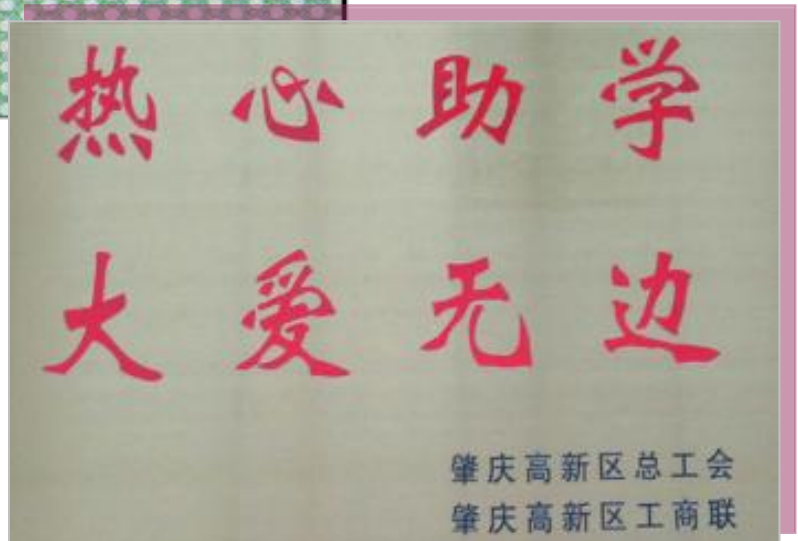 热心助学
大爱无边
肇庆高新区总工会
肇庆高新区工商联